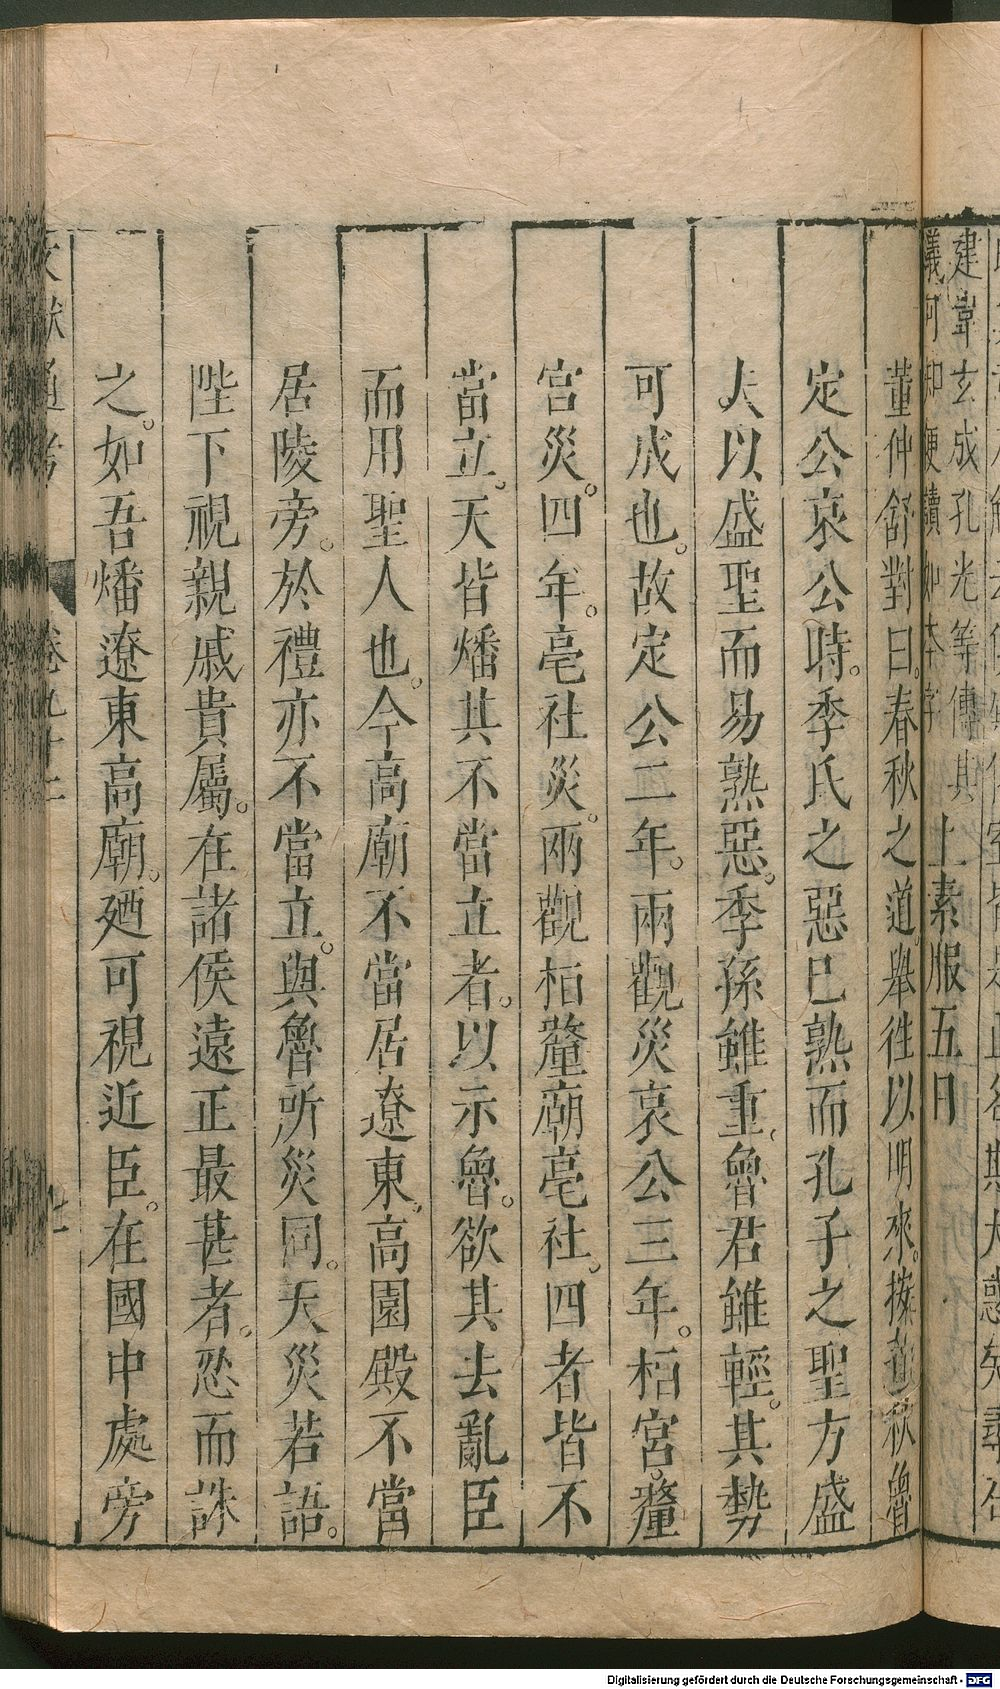 建韋玄成孔光等傳其
議何知便讀如本字
上素服五日
董仲舒對曰春秋之道舉徃以明來按春秋魯
定公哀公時季氏之惡已熟而孔子之聖方盛
夫以盛聖而易熟惡季孫雖重魯君雖輕其勢
可成也故定公二年兩觀災哀公三年栢宮釐
宮災四年亳社災兩觀栢釐廟亳社四者皆不
當立天皆燔其不當立者以示魯欲其去亂臣
而用聖人也今高廟不當居遼東高園殿不當
居陵旁於禮亦不當立與魯所災同天災若語
陛下視親戚貴屬在諸侯遠正最甚者忍而誅
之如吾燔遼東高廟廼可視近臣在國中處旁
文獻通考
卷九十二
七
Digitalisierung gefördert durch die Deutsche Forschungsgemeinschaft - DFG